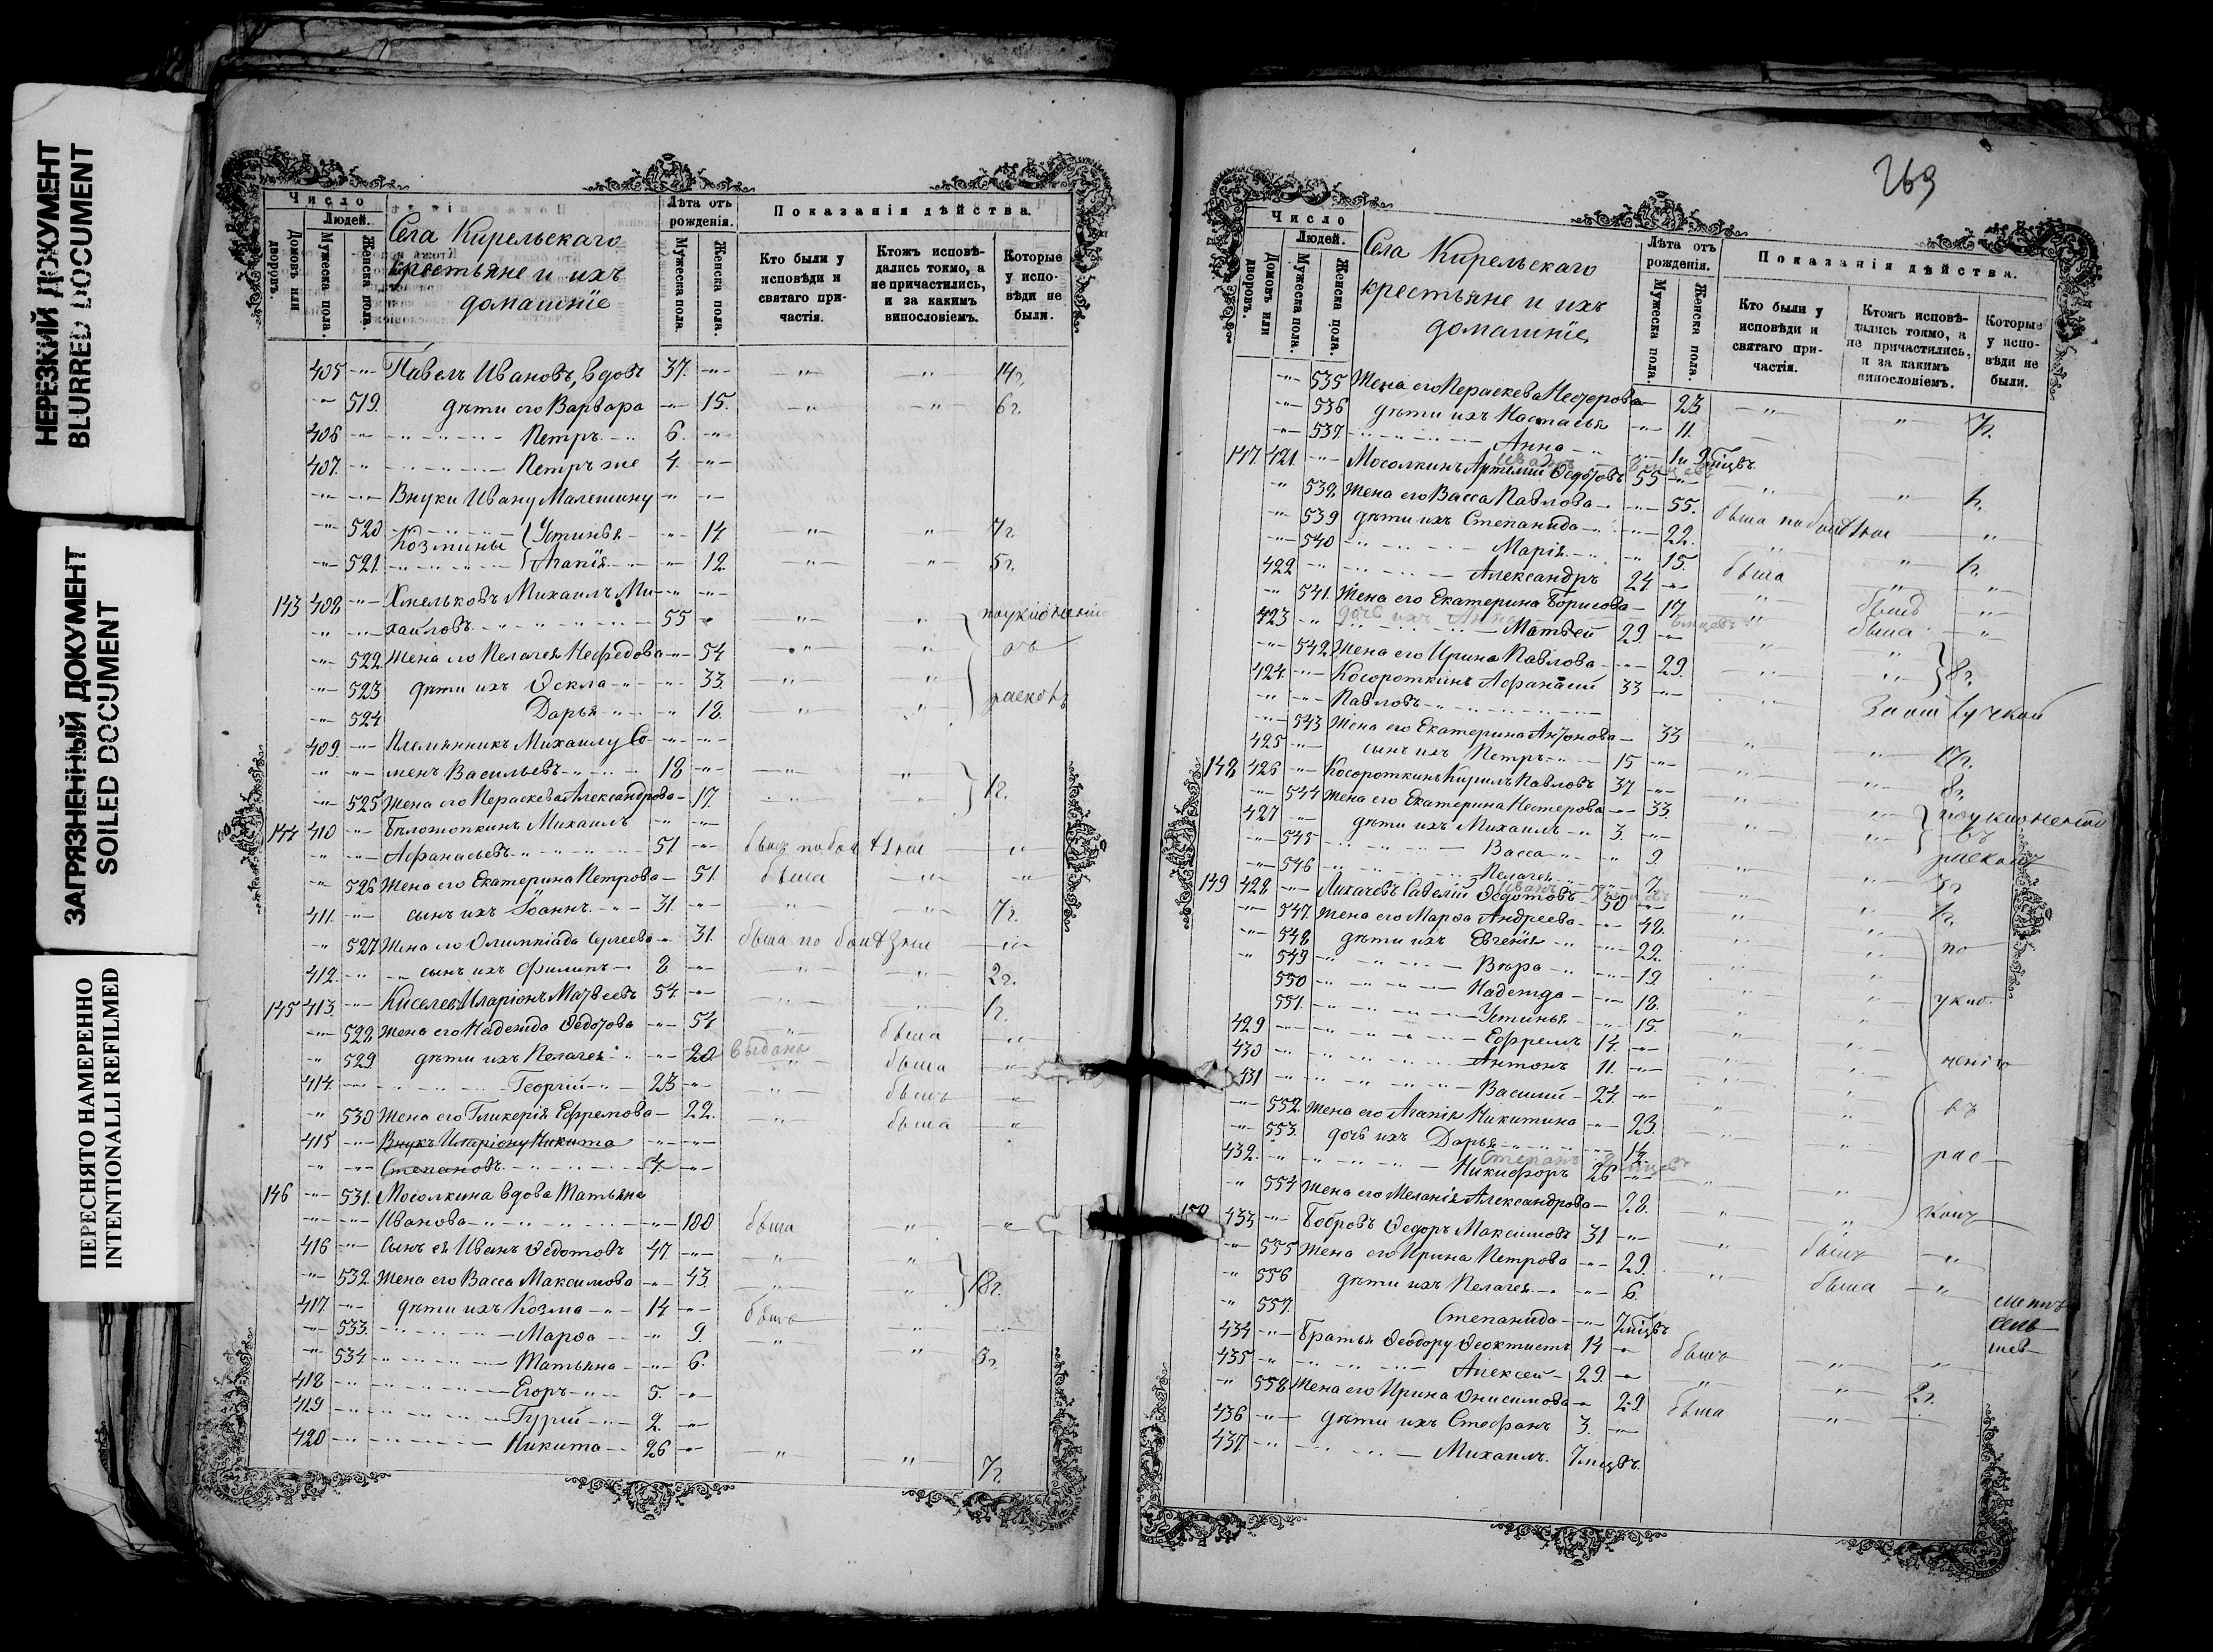 НЕРЕЗКИЙ ДОКУМЕНТ
BLURRED DOCUMENT
ЗАГРЯЗНЕННЫЙ ДОКУМЕНТ
SOILED DOCUMENT
ПЕРЕСНЯТО НАМЕРЕННО
INTENTIONALLI REFILMED
Число
Людей.
Домовъ или дворовъ.
Мужеска пола.
Женска пола.
Села Кирельскаго
крестьяне и ихъ
домашніе
Лѣта отъ рожденія.
Мужеска пола.
Женска пола.
Показанія дѣйства.
Кто были у исповѣди и святаго причастія.
Ктожъ исповѣдались токмо, а не причастились, и за какимъ винословіемъ.
Которые у исповѣди не были.
405 Павелъ Ивановъ, вдовъ 37. 14г.
519. дѣти его Варвара 15. 6г.
406 Петръ 6.
407. Петръ же 4.
Внуки Ивану Малешину
520 Козмины Устинья 14 7г.
521. Агапія 12. 5г.
143 408 Хмельковъ Михаилъ Ми-
хайловъ 55
522. Жена его Пелагея Нефедова 54
523 дѣти ихъ Ѳекла 33.
524 Дарья 18.
409 Племянникъ Михаилу Се-
менъ Васильевъ 18
525 Жена его Пераскева Александрова 17. 1г.
144 410 Бѣложопкинъ Михаилъ
Афанасьевъ 51
526 Жена его Екатерина Петрова 51. была
411. сынъ ихъ Іоаннъ 31. 7г.
527 Жена его Олимпіада Сергеева 31.
412. сынъ ихъ Филипъ 8 2г.
145 413. Киселевъ Иларіонъ Матвеевъ 54. 1г.
528. Жена его Надежда Ѳедотова 54 была
529 дѣти ихъ Пелагея 20 выдана была
414. Георгій 23 былъ
530 Жена его Гликерія Ефремова 22. была
415 Внукъ Иларіону Никита
Степановъ 4.
146 531. Мосолкина вдова Татьяна
Иванова 100 была
416 Сынъ ея Иванъ Ѳедотовъ 47
532. Жена его Васса Максимова 43. 18г.
417. дѣти ихъ Козма 14 былъ
533. Марѳа 9.
534 Татьяна 6. 3г.
418 Егоръ 5.
419 Гурій 2.
420 Никита 26 7г.
269
Число
Людей.
Домовъ или дворовъ.
Мужеска пола.
Женска пола.
Села Кирельскаго
крестьяне и ихъ
домашніе
Лѣта отъ рожденія.
Мужеска пола.
Женска пола.
Показанія дѣйства.
Кто были у исповѣди и святаго причастія.
Ктожъ исповѣдались токмо, а не причастились, и за какимъ винословіемъ.
Которые у исповѣди не были.
535 Жена его Пераскева Несторова 23 7г.
536 дѣти ихъ Настасья 11.
537. Анна
147. 421. Мосолкинъ Артемій Ѳедотовъ 55
538. Жена его Васса Павлова 55. 1г.
539 дѣти ихъ Степанида 22.
540 Марія 15. 1г.
422 Александръ 24. была
541. Жена его Екатерина Борисова 17 былъ
423 Матвей 29. была
542. Жена его Ирина Павлова 29. 8г.
424. Косороткинъ Афанасій 33
Павловъ
543 Жена его Екатерина Антонова 33
425 сынъ ихъ Петръ 15 17г.
148 426 Косороткинъ Кирилъ Павловъ 37 8г.
544 Жена его Екатерина Нестерова 33.
427 дѣти ихъ Михаилъ 3.
545 Васса 9.
546 Пелагея 7.
149 428 Лихачевъ Савелій Ѳедотовъ 50
547. Жена его Марѳа Андреева 48.
548 дѣти ихъ Евгенія 22. по
549 Вѣра 19
550 Надежда 18.
551. Устинья 15.
429 Ефремъ 14.
430 Антонъ 11.
431 Василій 24. въ
552. Жена его Агапія Никитина 23.
553. дочь ихъ Дарья рас
432. Никифоръ 26
554 Жена его Меланія Александрова 28.
150 433 Бобровъ Ѳедоръ Максимовъ 31 былъ
555 Жена его Ирина Петрова 29. была
556 дѣти ихъ Пелагея 6.
557. Степанида
434 Братья Ѳеодору Ѳеоктистъ 14 былъ
435 Алексей 29.
558 Жена его Ирина Онисимова 29 была 2г.
436 дѣти ихъ Стефанъ 3.
437 Михаилъ 7 мцвъ.